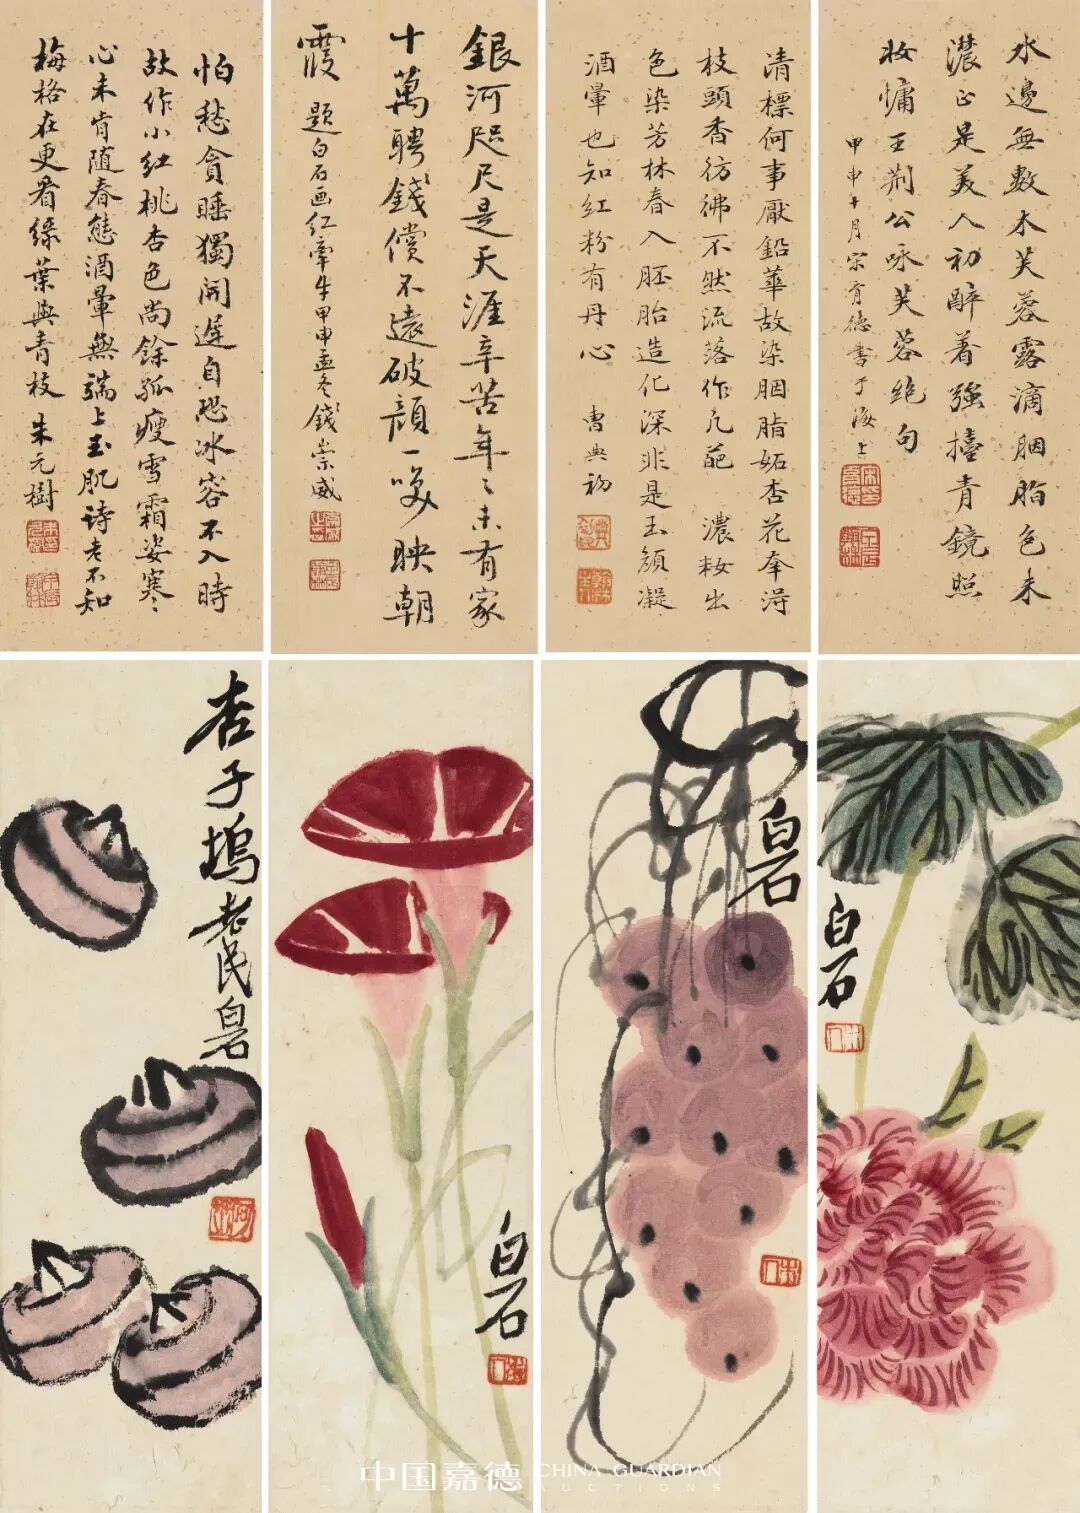 水邊無數木芙蓉露滴胭脂色未
濃正是美人初醉著強擡青鏡照
妝慵 王荆公咏芙蓉绝句
甲申十月宗育德書于海上
清標何事厭鉛華故染胭脂妬杏花奉浔
枝頭香彷彿不然流落作凡葩 濃妝出
色染芳林春入胚胎造化深非是玉顔凝
酒暈也知紅粉有丹心 曹典初
銀河咫尺是天涯辛苦年〻未有家
十萬聘錢償不遠破顔一唤映朝
霞 題白石画红牽牛甲申孟冬錢崇威
怕愁貪睡獨開遲自恐冰容不入時
故作小红桃杏色尚餘孤瘦雪霜姿寒〻
心未肯随春態酒暈無端上玉肌诗老不知
梅格在更看绿葉與青枝 朱元樹
白石
白石
白石
杏子塢老民白石
中国嘉德 CHINA GUARDIAN
AUCTIONS